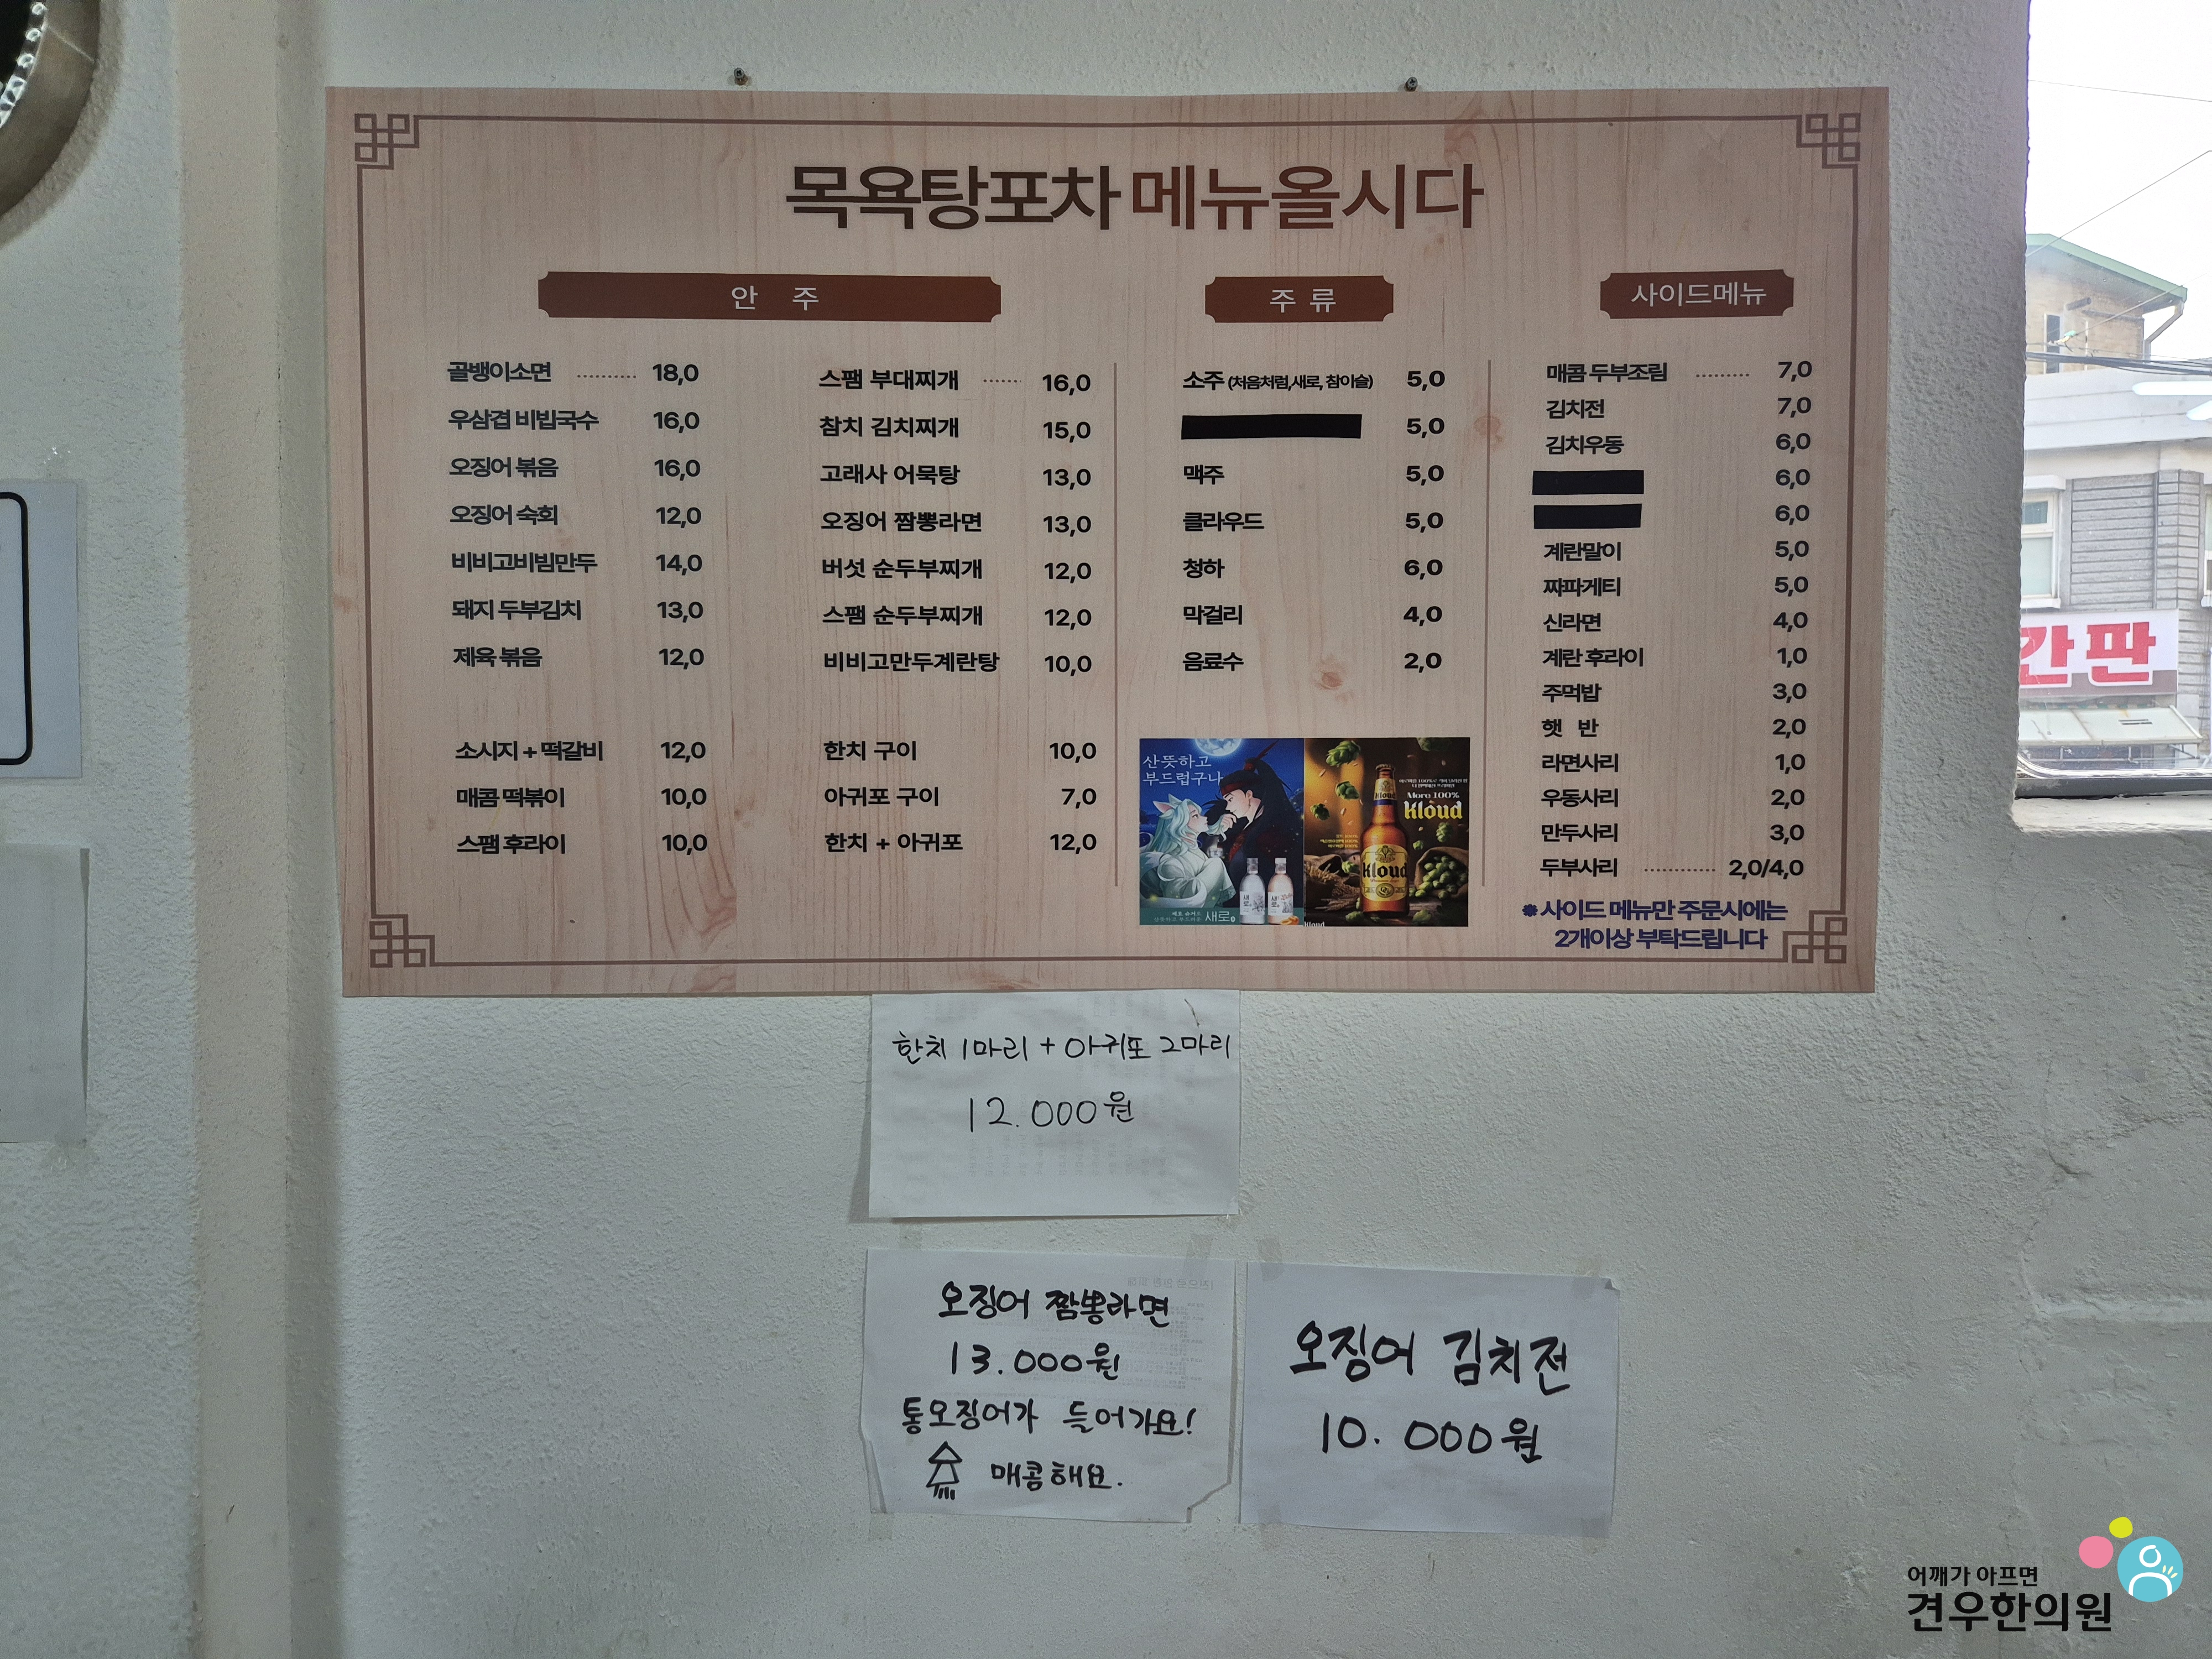 목욕탕포차 메뉴올시다
안 주
골뱅이소면 ············ 18,0
우삼겹 비빕국수 16,0
오징어 볶음 16,0
오징어 숙회 12,0
비비고비빔만두 14,0
돼지 두부김치 13,0
제육 볶음 12,0
소시지 + 떡갈비 12,0
매콤 떡볶이 10,0
스팸 후라이 10,0
스팸 부대찌개 ········ 16,0
참치 김치찌개 15,0
고래사 어묵탕 13,0
오징어 짬뽕라면 13,0
버섯 순두부찌개 12,0
스팸 순두부찌개 12,0
비비고만두계란탕 10,0
한치 구이 10,0
아귀포 구이 7,0
한치 + 아귀포 12,0
주 류
소주 (처음처럼,새로, 참이슬) 5,0
5,0
맥주 5,0
클라우드 5,0
청하 6,0
막걸리 4,0
음료수 2,0
산뜻하고
부드럽구나
새로
새로
새로
Moro 100%
Kloud
Kloud
Kloud
kloud
사이드메뉴
매콤 두부조림 ··········· 7,0
김치전 7,0
김치우동 6,0
6,0
6,0
계란말이 5,0
짜파게티 5,0
신라면 4,0
계란 후라이 1,0
주먹밥 3,0
햇 반 2,0
라면사리 1,0
우동사리 2,0
만두사리 3,0
두부사리 ·············· 2,0/4,0
※사이드 메뉴만 주문시에는
2개이상 부탁드립니다
간판
한치 1마리 + 아귀포 2마리
12.000원
오징어 짬뽕라면
13.000원
통오징어가 들어가요!
매콤해요.
오징어 김치전
10. 000원
어깨가 아프면
견우한의원